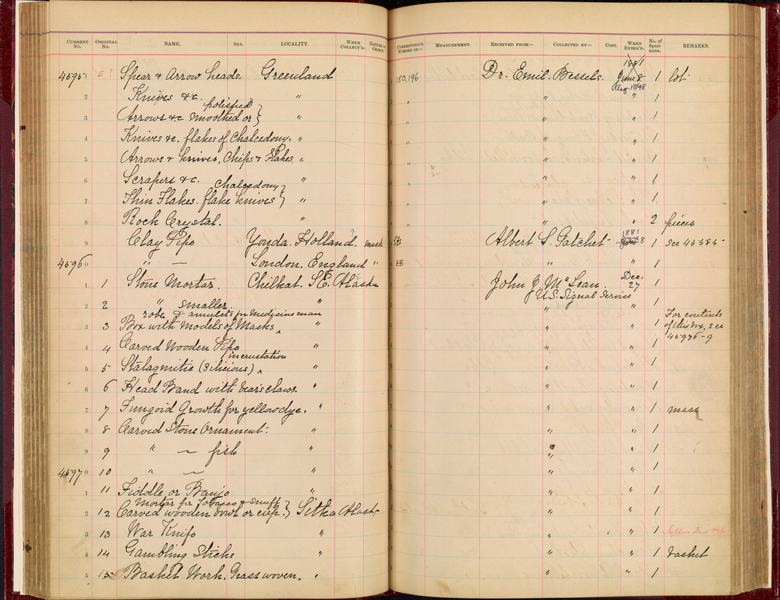 CURRENT No. ORIGINAL No. NAME. SEX. LOCALITY. WHEN COLLECT'D. NATURE OF OBJECT. CORRESPOND'G NUMBER OF— MEASUREMENT. RECEIVED FROM— COLLECTED BY— COST. WHEN ENTER'D. No. of Speci-mens. REMARKS.
1881
4595 Spear & Arrow heads. Greenland 150,196 Dr. Emil Bessels. June 8 1 lot
Aug 1848
2 Knives &c. " " " 1
polished
3 Arrows &c smoothed or } " " " 1
4 Knives &c. flakes of Chalcedony. " " " 1
5 Arrows & knives, Chips & Flakes " " " 1
6 Scrapers &c. " " " 1
Chalcedony
7 Thin Flakes. flake knives } " " " 1
8 Rock Crystal. " " " 2 pieces
1881
9 Clay Pipe Gouda. Holland. Albert S. Gatchet 1 see 45585
4596 " — London, England " " 1
1 1 Stone Mortar. Chilkat. S.E. Alaska John J. McLean. Dec. 27 1
U.S. Signal Service
2 2 " smaller. " " " 1
robe & amulets for medicine man
3 3 Box with Models of Masks ^ " " " 1 For contents of this box, see 45975-9
4 4 Carved Wooden Pipe " " " 1
incrustation
5 5 Stalagmitic (silicious) ^ " " " 1
6 6 Head Band with bear's claws. " " " 1
7 7 Fungoid Growth for yellow dye. " " " 1 mass
8 8 Carved Stone Ornament- " " " 1
9 9 " — fish " " " 1
4597 0 10 " — " " " 1
1 11 Fiddle or Banjo " " " 1
Mortar for Tobacco & snuff
2 12 Carved wooden bowl or cup. } Sitka Alaska " " 1
3 13 War Knife " " " 1
4 14 Gambling Sticks " " " 1 basket
5 15 Basket Work. Grass woven. " " " 1